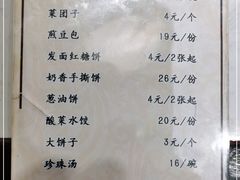 菜团子 4元/个
煎豆包 19元/份
发面红糖饼 4元/2张起
奶香手撕饼 26元/份
葱油饼 4元/2张起
酸菜水饺 20元/份
大饼子 3元/个
珍珠汤 16/碗